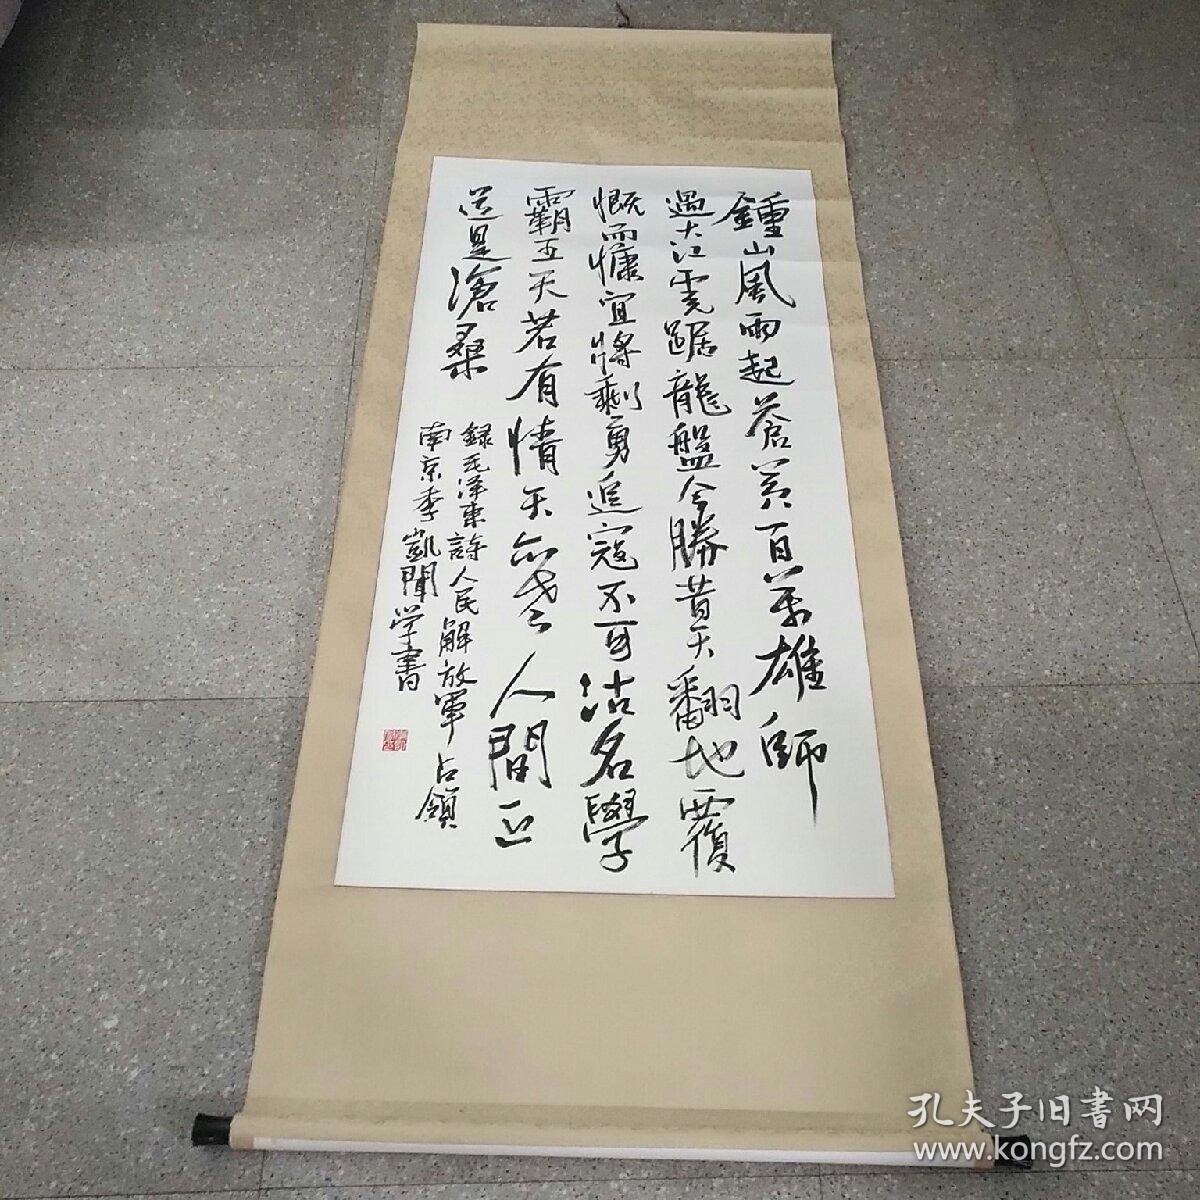 鍾山風雨起蒼黃百萬雄師
過大江虎踞龍盤今勝昔天翻地覆
慨而慷宜將剩勇追寇不可沽名學
霸王天若有情天亦老人間正
道是滄桑
録毛泽東詩人民解放軍占領
南京季凱聞学書
孔夫子旧書网
www.kongfz.com